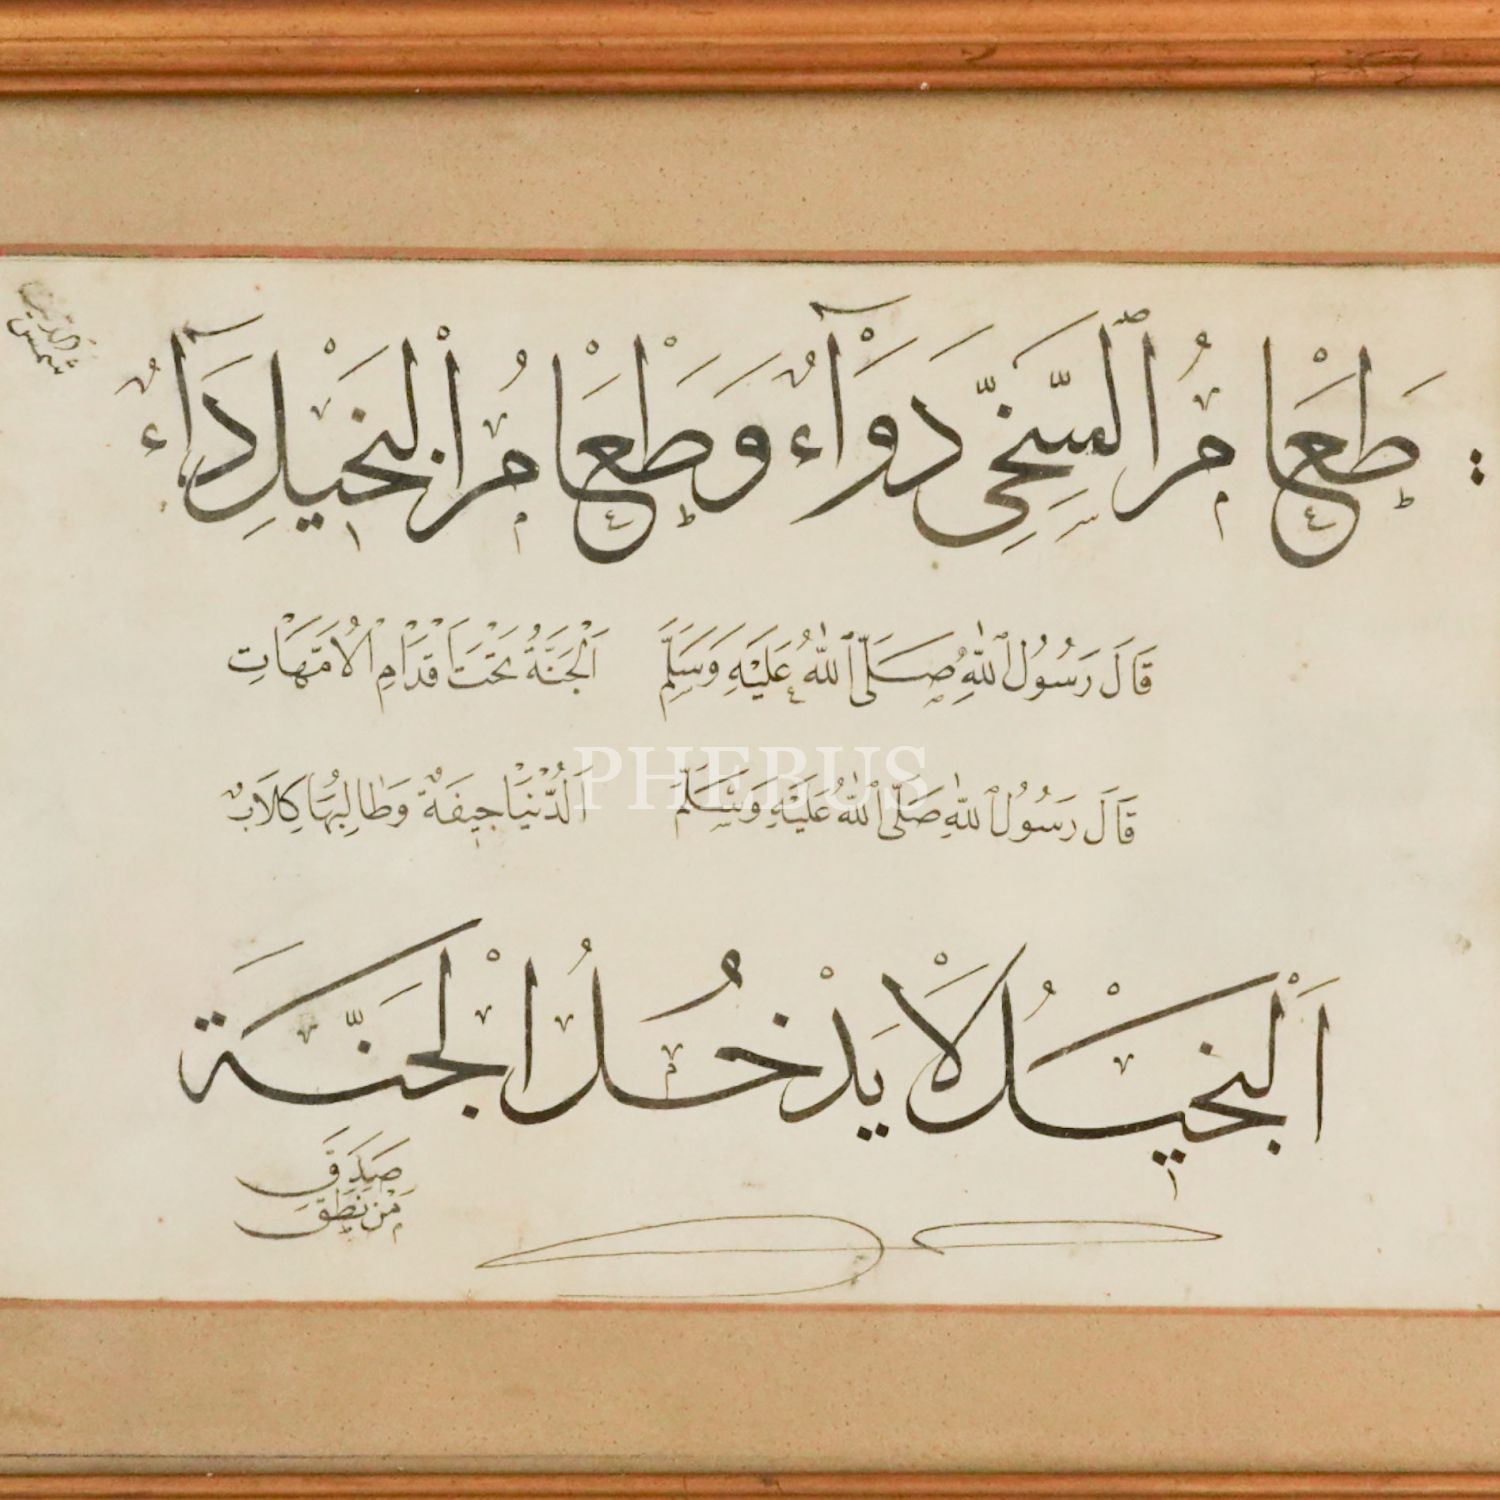 شمس الدين
طَعَامُ ٱلسَّخِيِّ دَوَآءٌ وَطَعَامُ الْبَخِيلِ دَآءٌ
قَالَ رَسُولُ ٱللهِ صَلَّى ٱللهُ عَلَيْهِ وَسَلَّمَ اَلْجَنَّةُ تَحْتَ اَقْدَامِ الْاُمَّهَاتِ
قَالَ رَسُولُ ٱللهِ صَلَّى ٱللهُ عَلَيْهِ وَسَلَّمَ اَلدُّنْيَا جِيفَةٌ وَطَالِبُهَا كِلَابٌ
PHEBUS
اَلْبَخِيلُ لَا يَدْخُلُ الْجَنَّةَ
صَدَقَ
مَنْ نَطَقَ